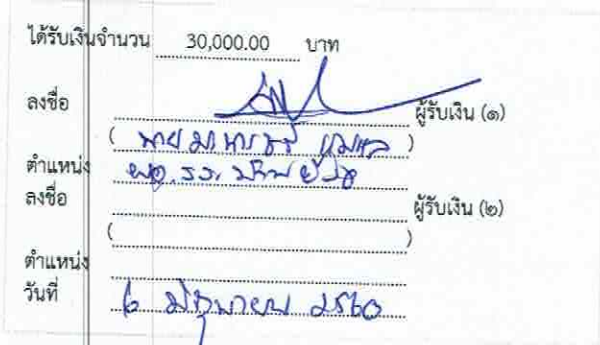 ได้รับเงินจำนวน 30,000.00 บาท
ลงชื่อ ผู้รับเงิน (๑)
( นาย )
ตำแหน่ง ผอ.รร.
ลงชื่อ ผู้รับเงิน (๒)
( )
ตำแหน่ง
วันที่ ๖ มิถุนายน ๒๕๖๐